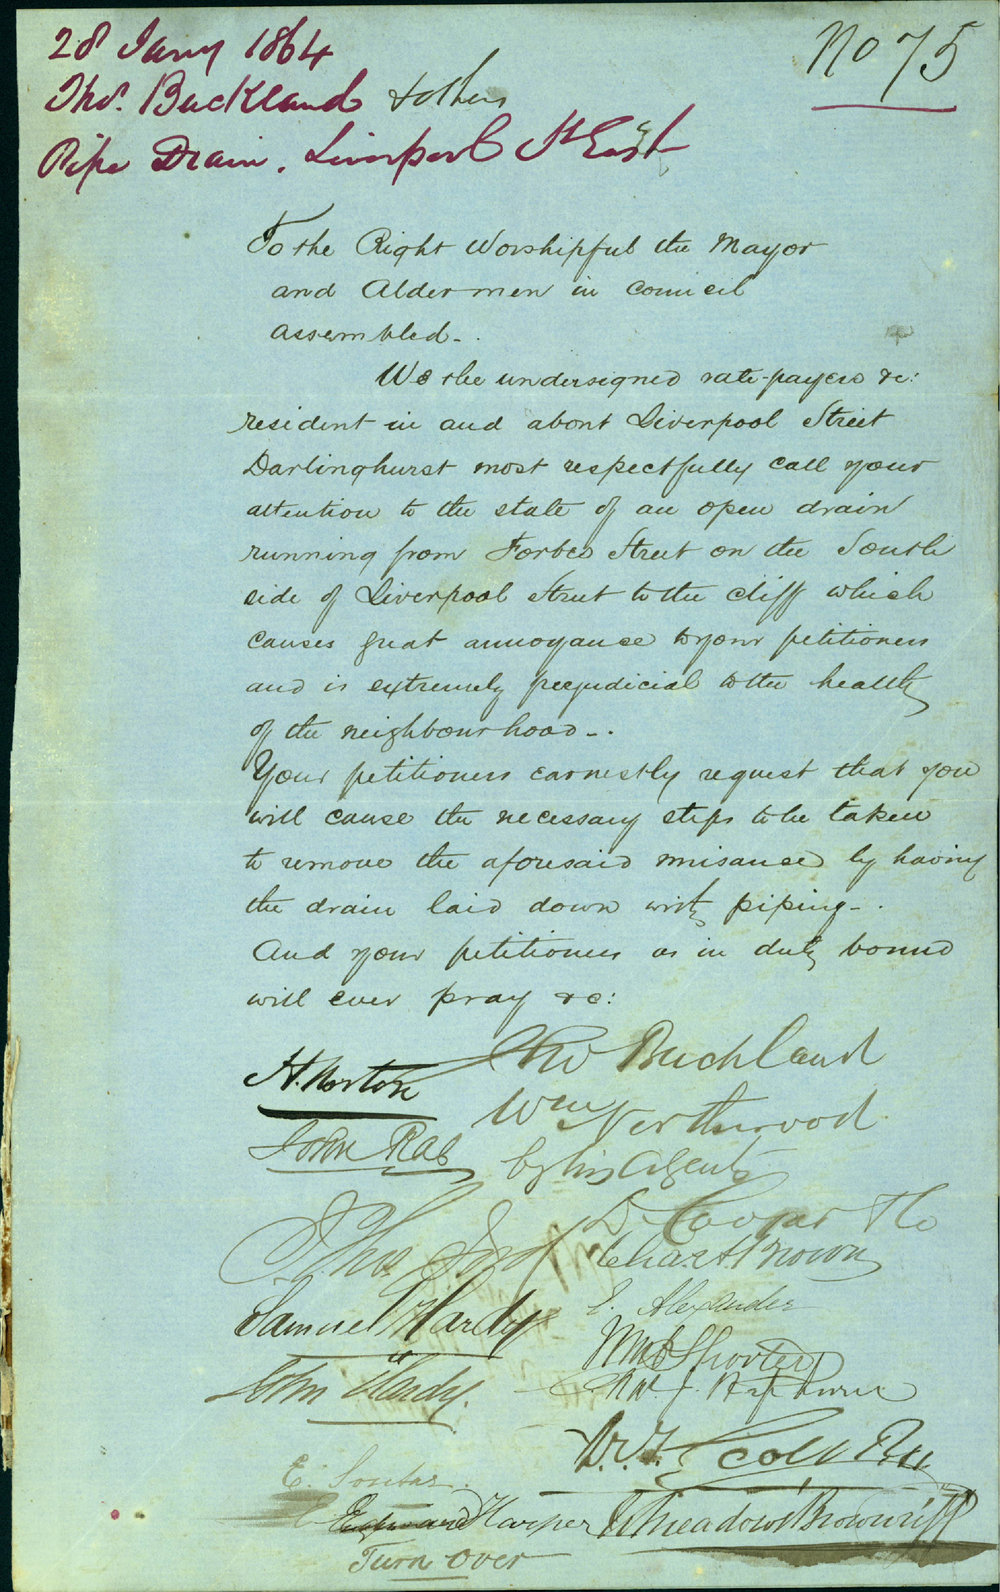 28 Jany 1864
No 75
Thos. Buckland & others
Pipe Drain, Liverpool St East
To the Right Worshipful the Mayor
and Aldermen in Council
assembled.
We the undersigned rate-payers &c:
resident in and about Liverpool Street
Darlinghurst most respectfully call your
attention to the state of an open drain
running from Forbes Street on the South
side of Liverpool Street to the cliff which
causes great annoyance to your petitioners
and is extremely prejudicial to the health
of the neighbourhood.
Your petitioners earnestly request that you
will cause the necessary steps to be taken
to remove the aforesaid nuisance by having
the drain laid down with piping.
And your petitioners as in duty bound
will ever pray &c:
Thos Buckland
H. Norton
Wm Northwood
John Rae
by his Agent
D. Cooper & Co
Thos Ford
Chas H Brown
E. Alexander
Samuel Hardy
Wm Shorter
John Hardy.
J.
Scott
E. Soutar
Edward Harper
Meadows Brownrigg
Turn over